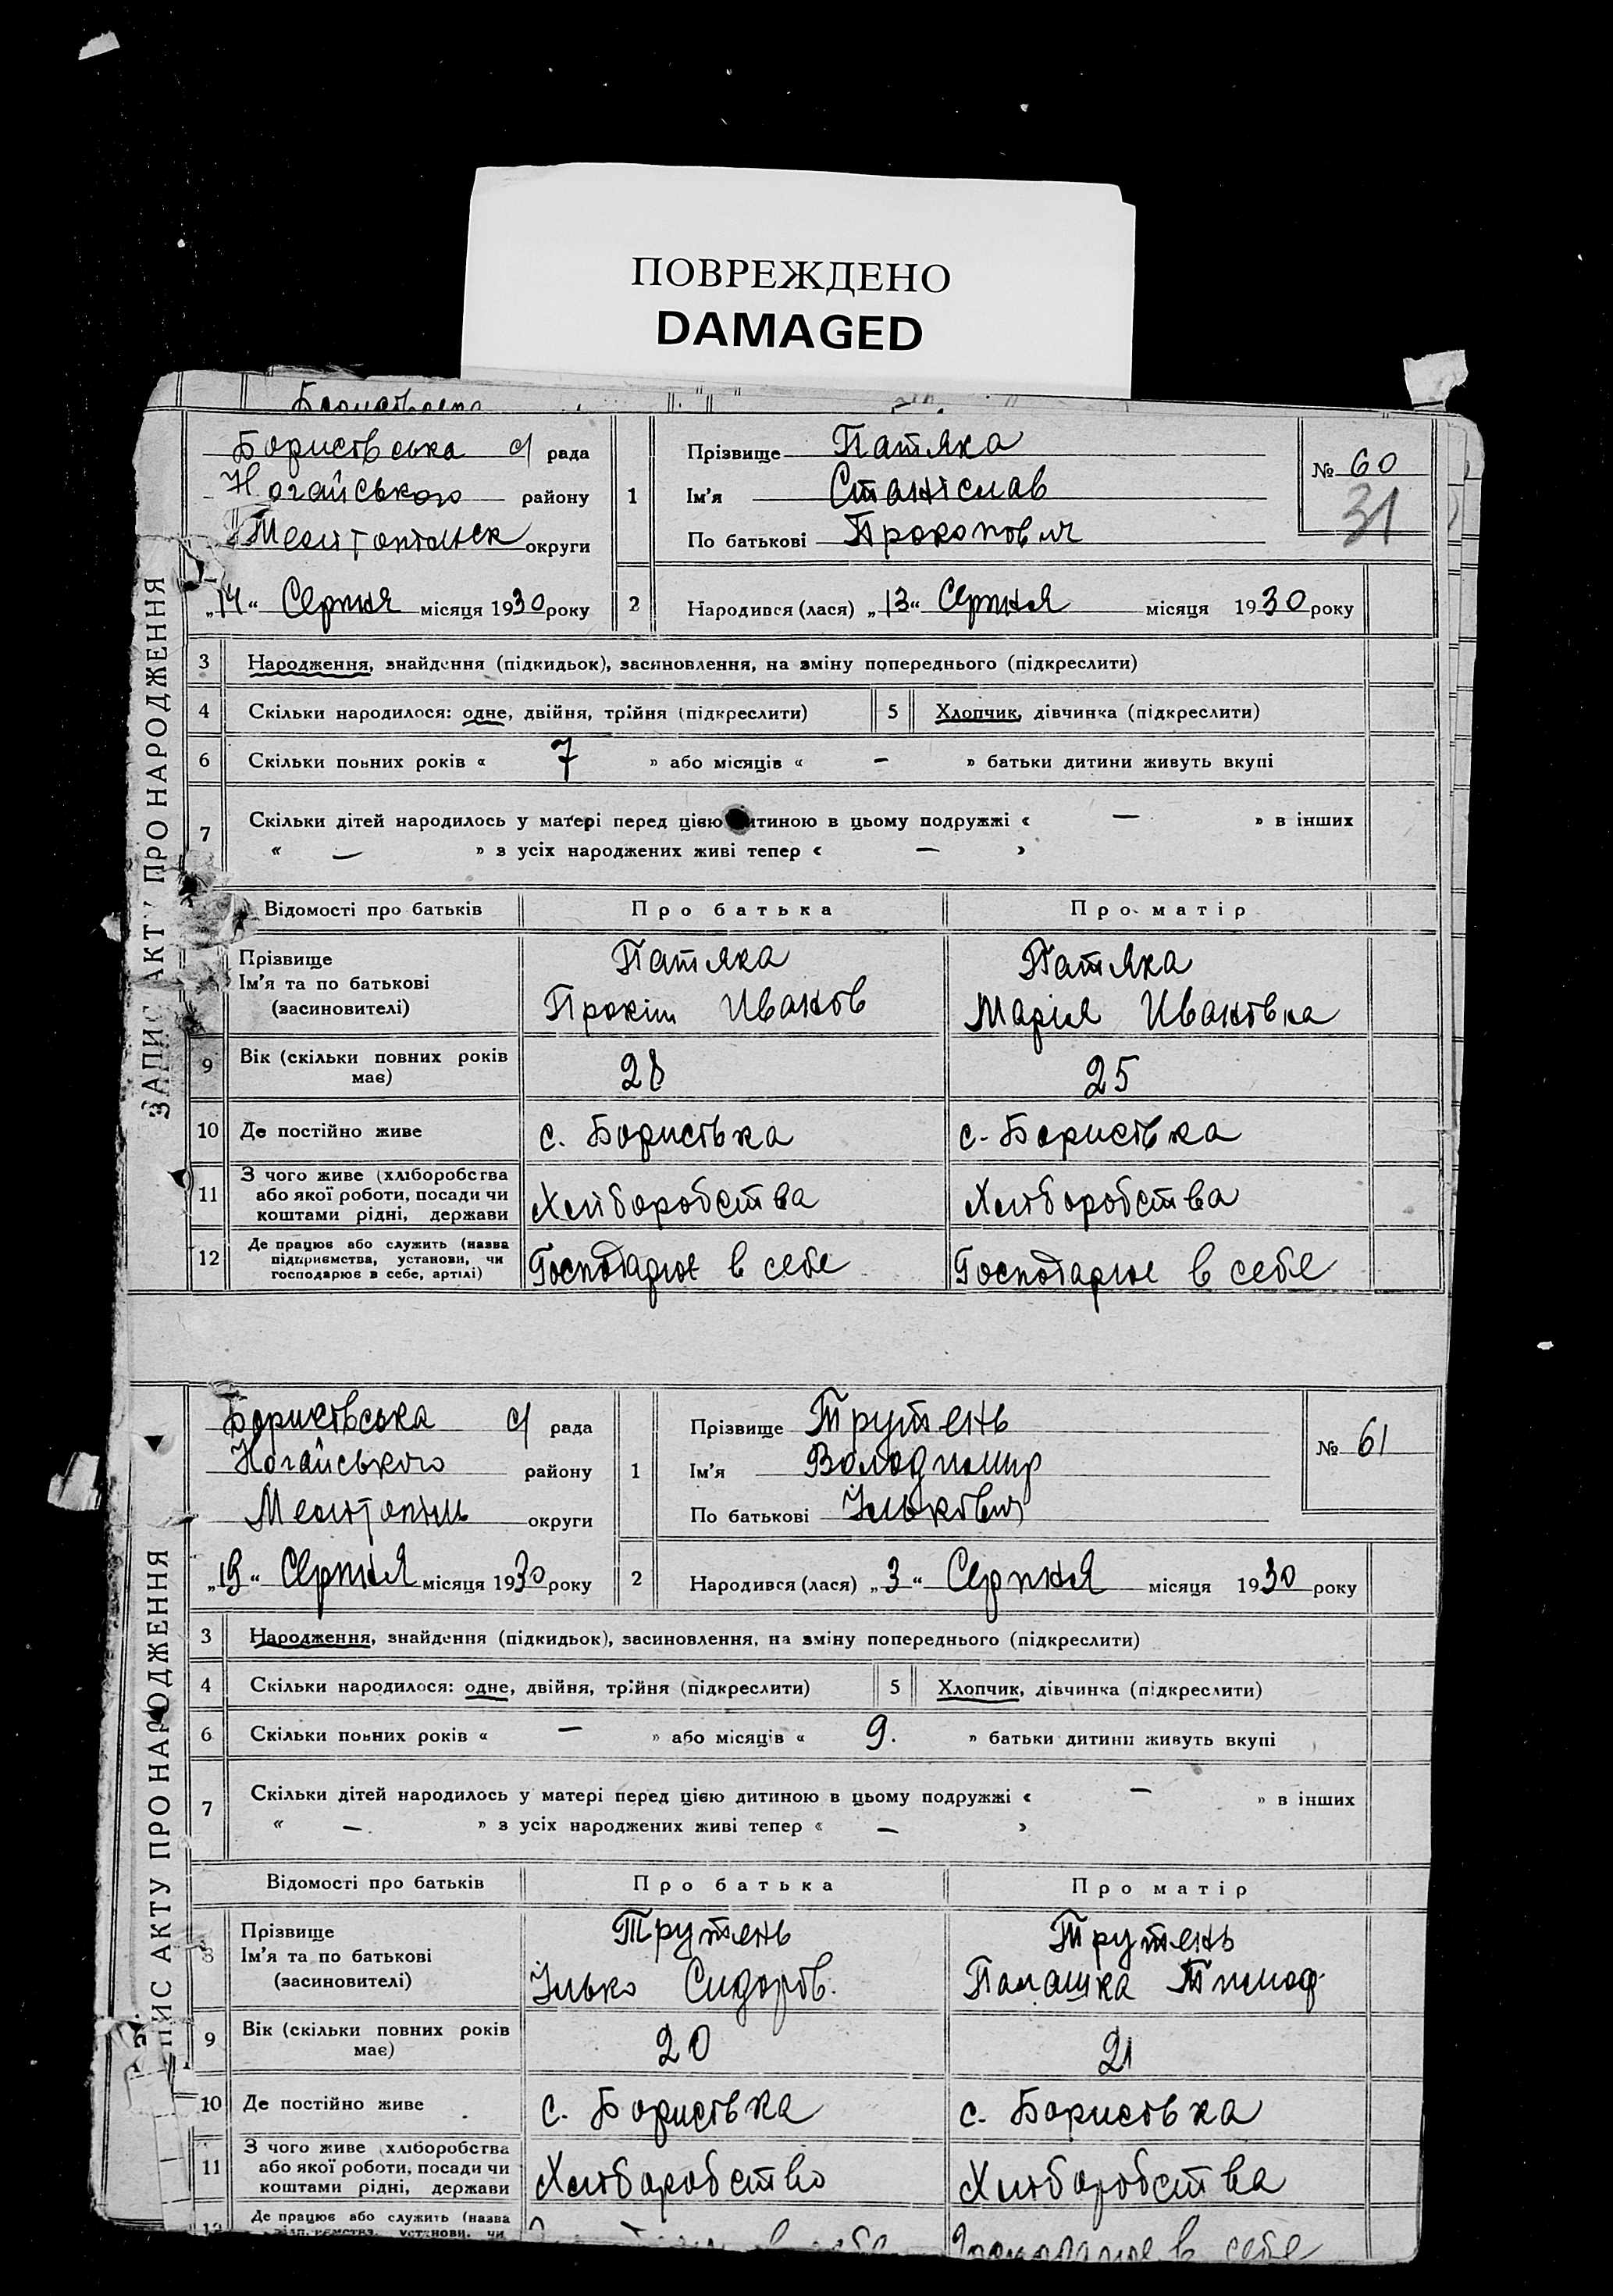 ПОВРЕЖДЕНО
DAMAGED
ЗАПИС АКТУ ПРО НАРОДЖЕННЯ
Борисівська с/ рада
Ногайського району
Мелітопільск округи
„14“ Серпня місяця 1930 року
1 Прізвище Патяка
Ім’я Станіслав
По батькові Прокопович
№ 60
31
2 Народився (лася) „13“ Серпня місяця 1930 року
3 Народження, знайдення (підкидьок), засиновлення, на зміну попереднього (підкреслити)
4 Скільки народилося: одне, двійня, трійня (підкреслити) 5 Хлопчик, дівчинка (підкреслити)
6 Скільки повних років « 7 » або місяців « – » батьки дитини живуть вкупі
7 Скільки дітей народилось у матері перед цією дитиною в цьому подружжі « — » в інших
« — » з усіх народжених живі тепер « — »
Відомості про батьків Про батька Про матір
Прізвище Патяка Патяка
Ім’я та по батькові Прокіп Иванов Марія Ивановна
(засиновителі)
9 Вік (скільки повних років має) 28 25
10 Де постійно живе с. Борисівка с. Борисівка
11 З чого живе (хліборобства
або якої роботи, посади чи
коштами рідні, держави Хліборобства Хліборобства
12 Де працює або служить (назва
підприємства, установи, чи
господарює в себе, артілі) Господарює в себе Господарює в себе
ЗАПИС АКТУ ПРО НАРОДЖЕННЯ
Борисівська с/ рада
Ногайського району
Мелітопіль округи
„19“ Серпня місяця 1930 року
1 Прізвище Трутень
Ім’я Володимир
По батькові Ількович
№ 61
2 Народився (лася) „3“ Серпня місяця 1930 року
3 Народження, знайдення (підкидьок), засиновлення, на зміну попереднього (підкреслити)
4 Скільки народилося: одне, двійня, трійня (підкреслити) 5 Хлопчик, дівчинка (підкреслити)
6 Скільки повних років « – » або місяців « 9. » батьки дитини живуть вкупі
7 Скільки дітей народилось у матері перед цією дитиною в цьому подружжі « – » в інших
« – » з усіх народжених живі тепер « – »
Відомості про батьків Про батька Про матір
8 Прізвище Трутень Трутень
Ім’я та по батькові Ілько Сидоров. Палашка Тимоф.
(засиновителі)
9 Вік (скільки повних років має) 20 21
10 Де постійно живе с. Борисівка с. Борисівка
11 З чого живе (хліборобства
або якої роботи, посади чи
коштами рідні, держави Хліборобство Хліборобства
12 Де працює або служить (назва
установи, чи в себе Господарює в себе